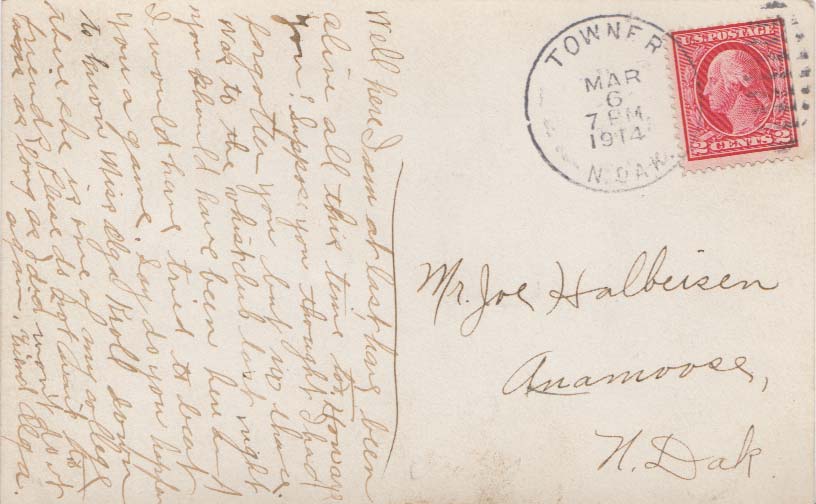 Well here I am at last, have been
alive all this time too. How are
you? Suppose you thought I had
forgotten you but no chance.
Was to the whist club last night
you should have been here &
I would have tried to beat
you a game. Say do you happen
to know Miss Olga Kroll down
there she is one of my college
friends. Please do not wait
as long as I did won't do it
again. Friend Olga.
TOWNER
MAR
6
7 PM
1914
N. DAK.
U.S. POSTAGE
2 CENTS 2
Mr. Joe Halbeisen
Anamoose,
N. Dak